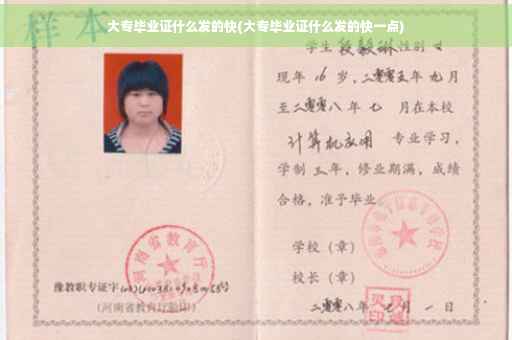 大专毕业证什么发的快(大专毕业证什么发的快一点)
样本
学生段毅琳性别女
现年16岁，二零零五年九月
至二零零八年七月在本校
计算机应用 专业学习，
学制三年，修业期满，成绩
合格，准予毕业。
学校（章）
校长（章）
二零零八年七月一日
河南省教育厅
豫教职专证字
(河南省教育厅验印)